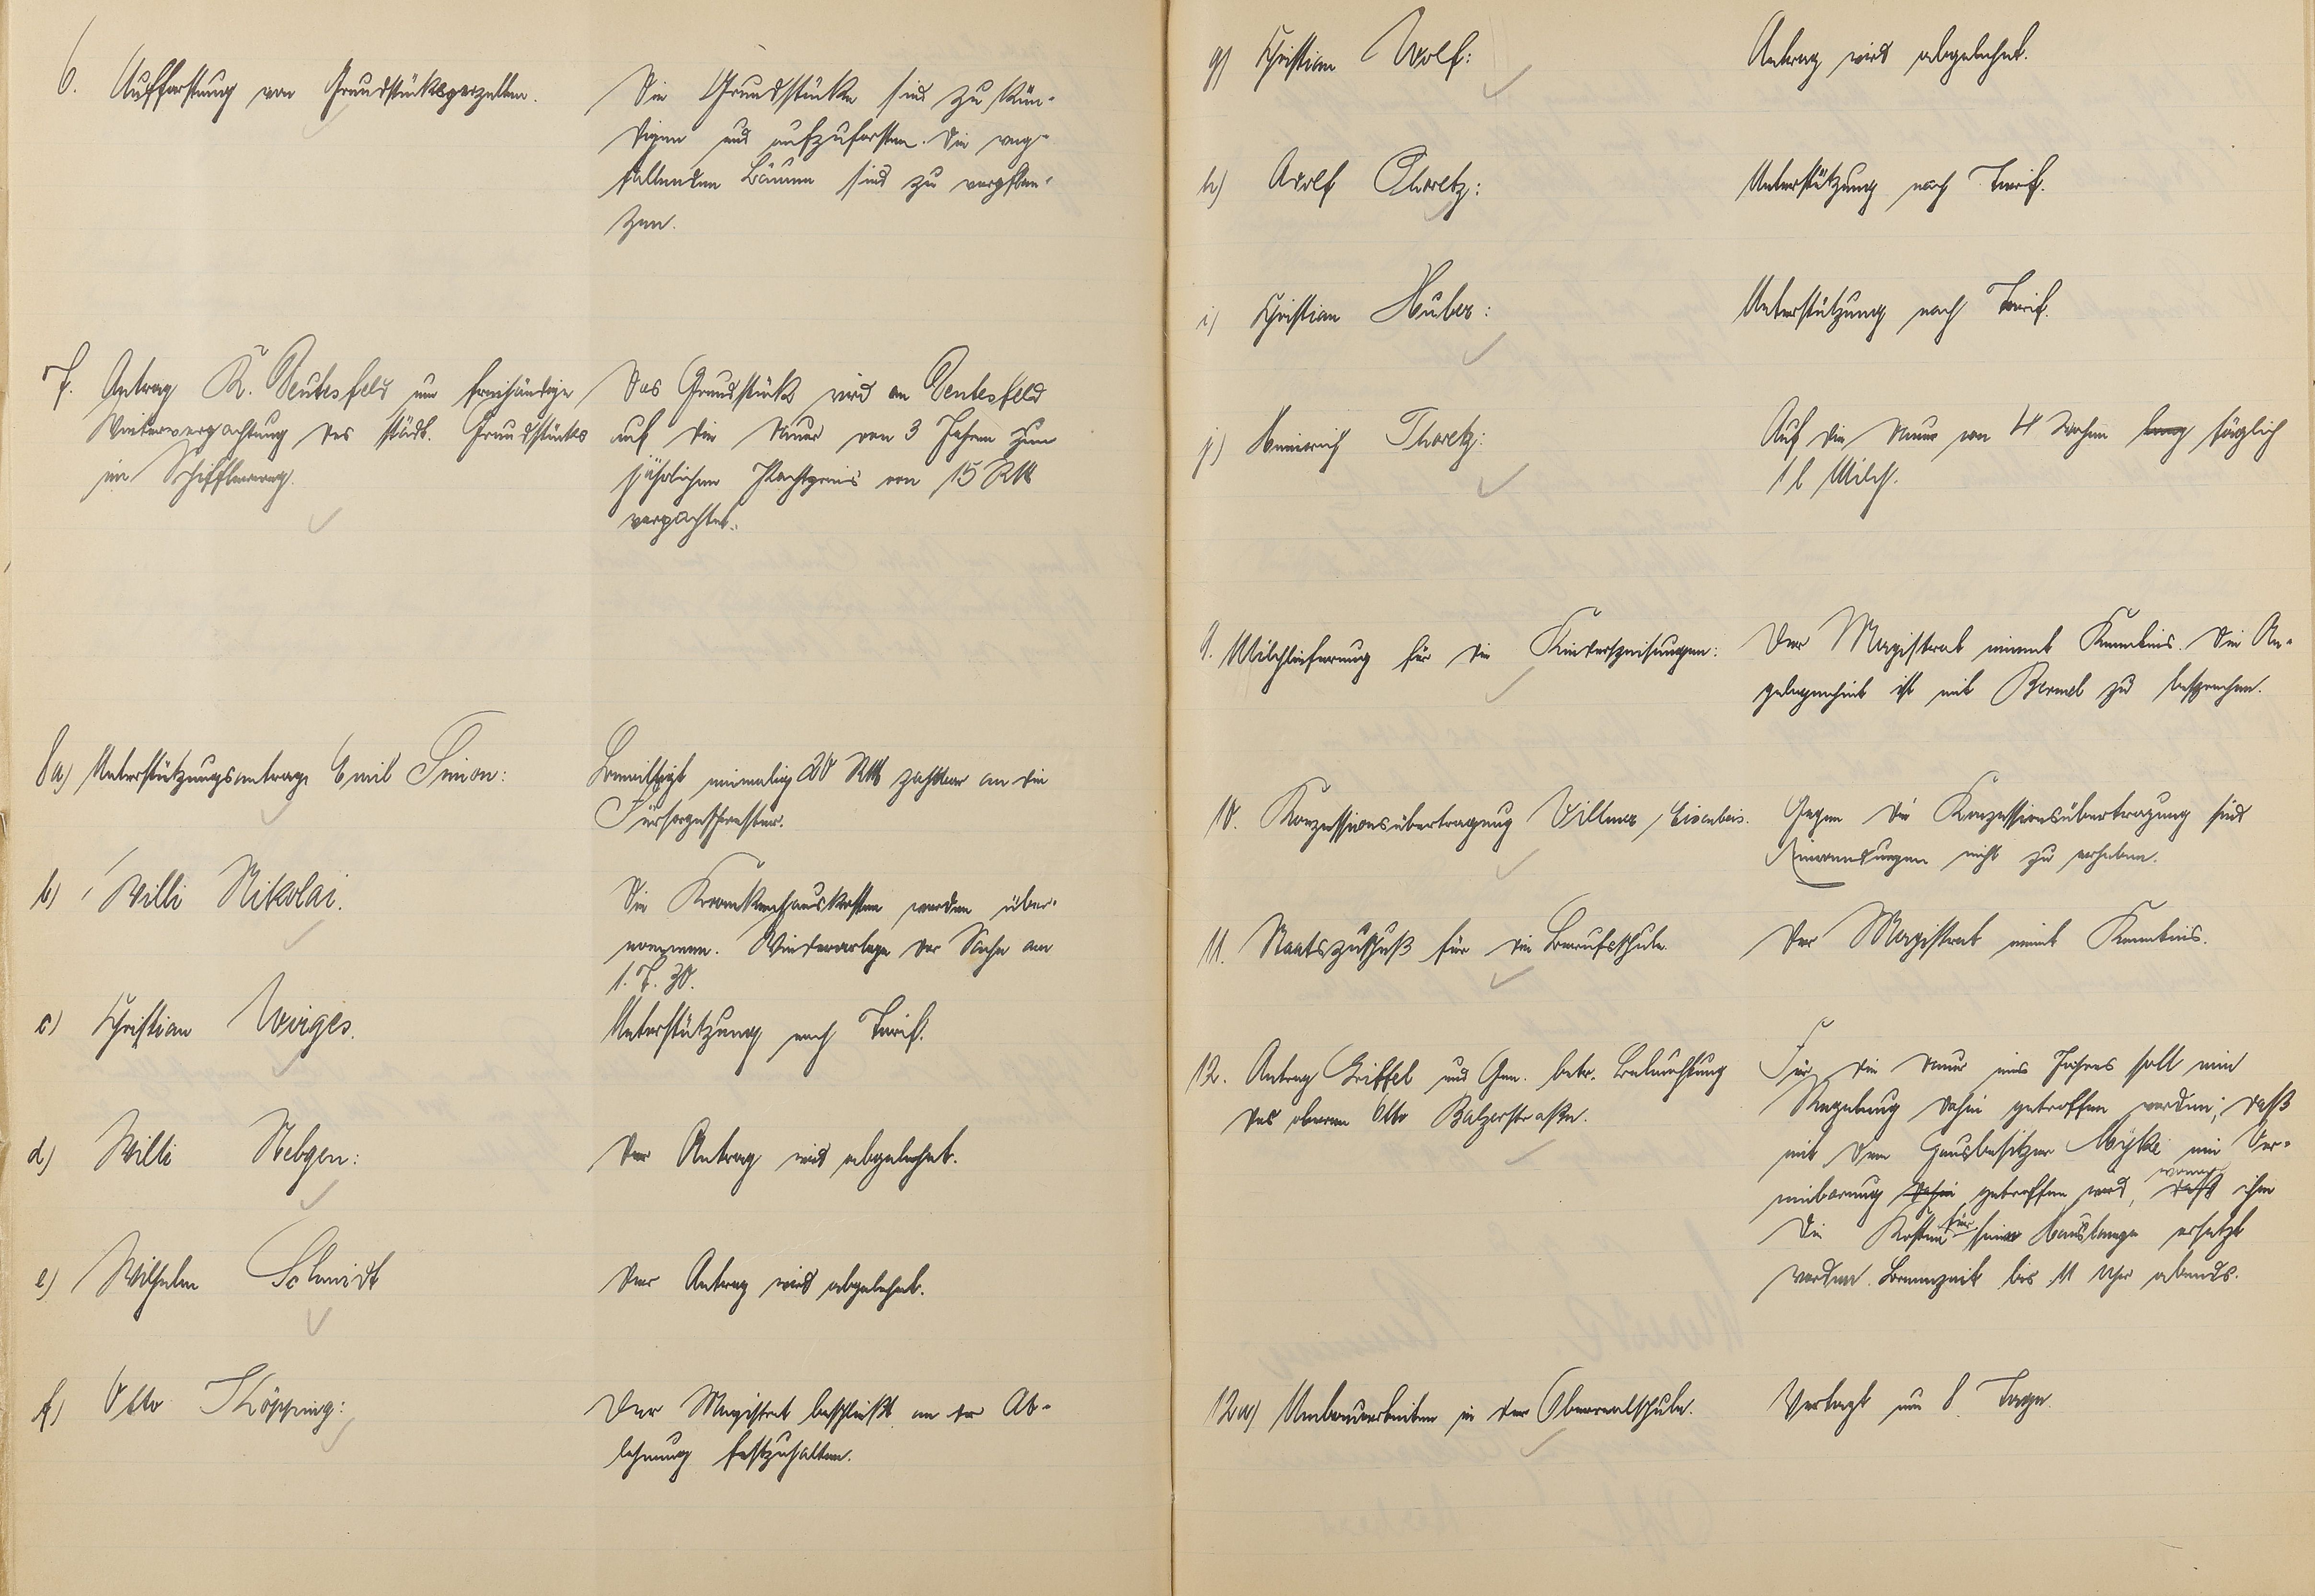 6. Aufforstung von Grundstücksparzellen.
Die Grundstücke sind zu kün-
digen und aufzuforsten. Die weg-
fallenden Bäume sind zu verpflan-
zen.
7. Antrag K. Pentesfeld um freihändige
Weiterverpachtung des städt. Grundstücks
im Schifflerweg.
Das Grundstück wird an Pentesfeld
auf die Dauer von 3 Jahren zum
jährlichen Pachtpreis von 15 RM
verpachtet.
8a) Unterstützungsantrag Emil Simon:
Bewilligt einmalig 20 RM zahlbar an die
Fürsorgeschwester.
b) Willi Nikolai.
Die Krankenhauskosten werden über-
nommen. Wiedervorlage der Sache am
1.7.30.
c) Christian Woiges.
Unterstützung nach Tarif.
d) Willi Nebgen:
Der Antrag wird abgelehnt.
e) Wilhelm Schmidt
Der Antrag wird abgelehnt.
f) Otto Köpping:
Der Magistrat beschließt an der Ab-
lehnung festzuhalten.
g) Christian Wolf:
Antrag wird abgelehnt.
h) Adolf Thoretz:
Unterstützung nach Tarif.
i) Christian Huber:
Unterstützung nach Tarif.
j) Heinrich Thoretz:
Auf die Dauer von 4 Wochen lang täglich
1 l Milch.
9. Milchlieferung für die Kinderspeisungen:
Der Magistrat nimmt Kenntnis. Die An-
gelegenheit ist mit Bermel zu besprechen.
10. Konzessionsübertragung Villmer / Eisenbeis.
Gegen die Konzessionsübertragung sind
Einwendungen nicht zu erheben.
11. Staatszuschuß für die Berufsschule.
Der Magistrat nimmt Kenntnis.
12. Antrag Griffel und Gen. betr. Beleuchtung
der oberen Otto Balzerstraße.
Für die Dauer eines Jahres soll eine
Regelung dahin getroffen werden, daß
mit dem Hausbesitzer eine Ver-
einbarung dahin getroffen wird, wonach daß ihm
die Kosten für seiner Hauslampe ersetzt
werden. Brennzeit bis 11 Uhr abends.
12a) Umbauarbeiten in der Oberrealschule.
Vertagt um 8 Tage.